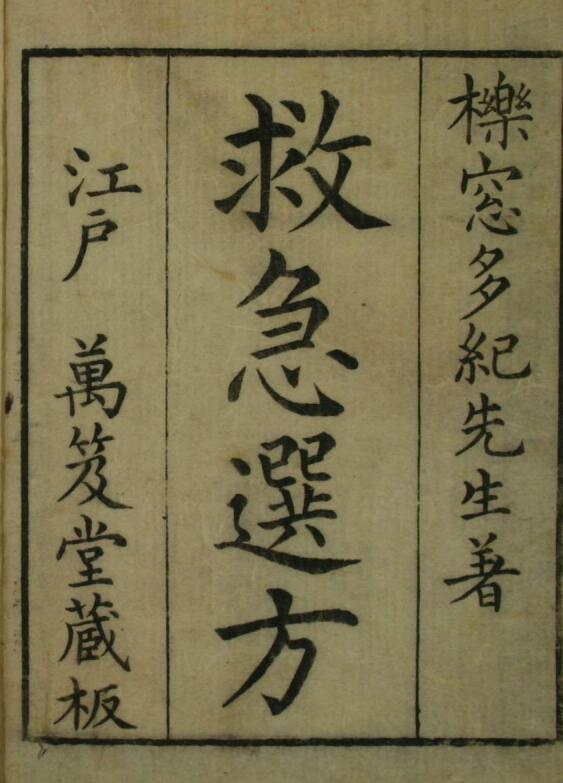 櫟窓多紀先生著
救急選方
江戸 萬笈堂蔵板